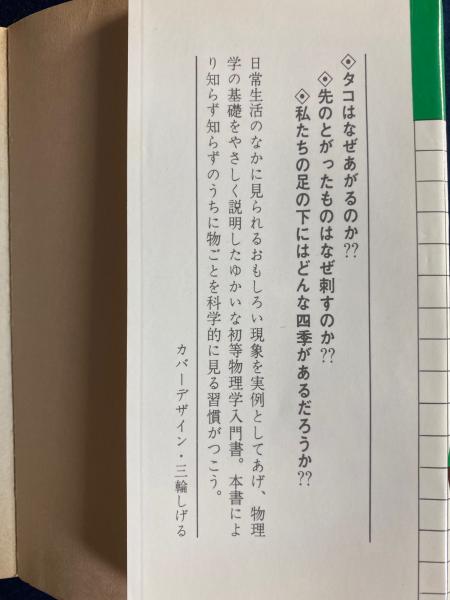 ◈タコはなぜあがるのか??
◈先のとがったものはなぜ刺すのか??
◈私たちの足の下にはどんな四季があるだろうか??
日常生活のなかに見られるおもしろい現象を実例としてあげ、物理
学の基礎をやさしく説明したゆかいな初等物理学入門書。本書によ
り知らず知らずのうちに物ごとを科学的に見る習慣がつこう。
カバーデザイン・三輪しげる